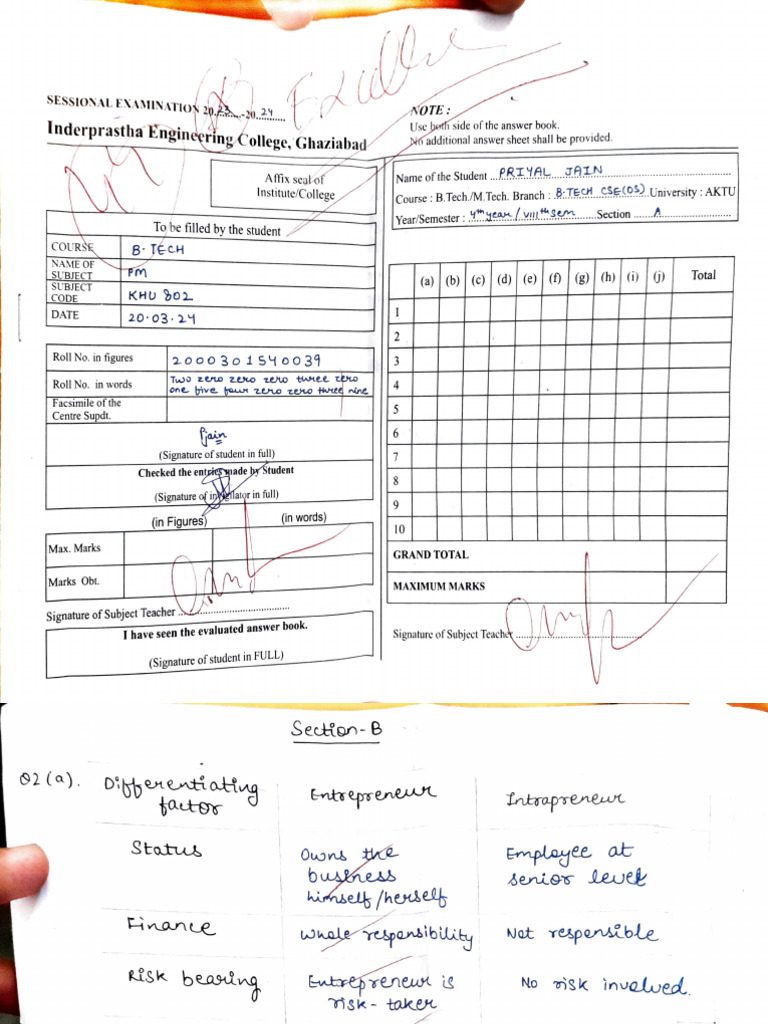 Excellent
SESSIONAL EXAMINATION 2023-2024
Inderprastha Engineering College, Ghaziabad
Affix seal of
Institute/College
To be filled by the student
COURSE B.TECH
NAME OF
SUBJECT PM
SUBJECT
CODE KHU 802
DATE 20.03.24
Roll No. in figures 2000301540039
Roll No. in words Two zero zero zero three zero
one five four zero zero three nine
Facsimile of the
Centre Supdt.
Pjain
(Signature of student in full)
Checked the entries made by Student
(Signature of invigilator in full)
(in Figures) (in words)
Max. Marks
Marks Obt.
Signature of Subject Teacher
I have seen the evaluated answer book.
(Signature of student in FULL)
NOTE :
Use both side of the answer book.
No additional answer sheet shall be provided.
Name of the Student PRIYAL JAIN
Course : B.Tech./M.Tech. Branch : B.TECH CSE(DS) University : AKTU
Year/Semester : 4th year / VIIIth sem Section A
(a) (b) (c) (d) (e) (f) (g) (h) (i) (j) Total
1
2
3
4
5
6
7
8
9
10
GRAND TOTAL
MAXIMUM MARKS
Signature of Subject Teacher
Section-B
Q2(a). Differentiating Entrepreneur Intrapreneur
factor
Status Owns the Employee at
business senior level
himself/herself
Finance Whole responsibility Not responsible
Risk bearing Entrepreneur is No risk involved.
risk-taker